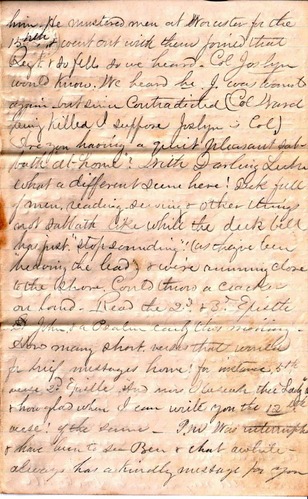 him. He mustered men at Worcester for the
15th & went out with them joined that
Regt & so fell so we heard. Col Joslyn
would know. We heard he J. was
again but since contradicted (Col Ward
being killed I suppose Joslyn is Col)
Are you having a quiet pleasant Sab-
bath at home! With Darling
What a different scene here! Deck full
of men, reading, sewing & other things
not Sabbath like while the deck bell
has just "stop sounding" (as they've been
heaving the lead) & were running close
to the shore, Could throw a cracker
on land. - Read the 2d & 3d Epistle
John, & a Psalm early this morning
How many short verses that would
for brief messages home! for instance 5th
verse 2d Epistle. And now I beseech thee Lady
& how glad when I can write you the 12
verse! of the same - P.M. Was interrupted
& have been to see Ben & chat awhile -
always has a kindly message for you